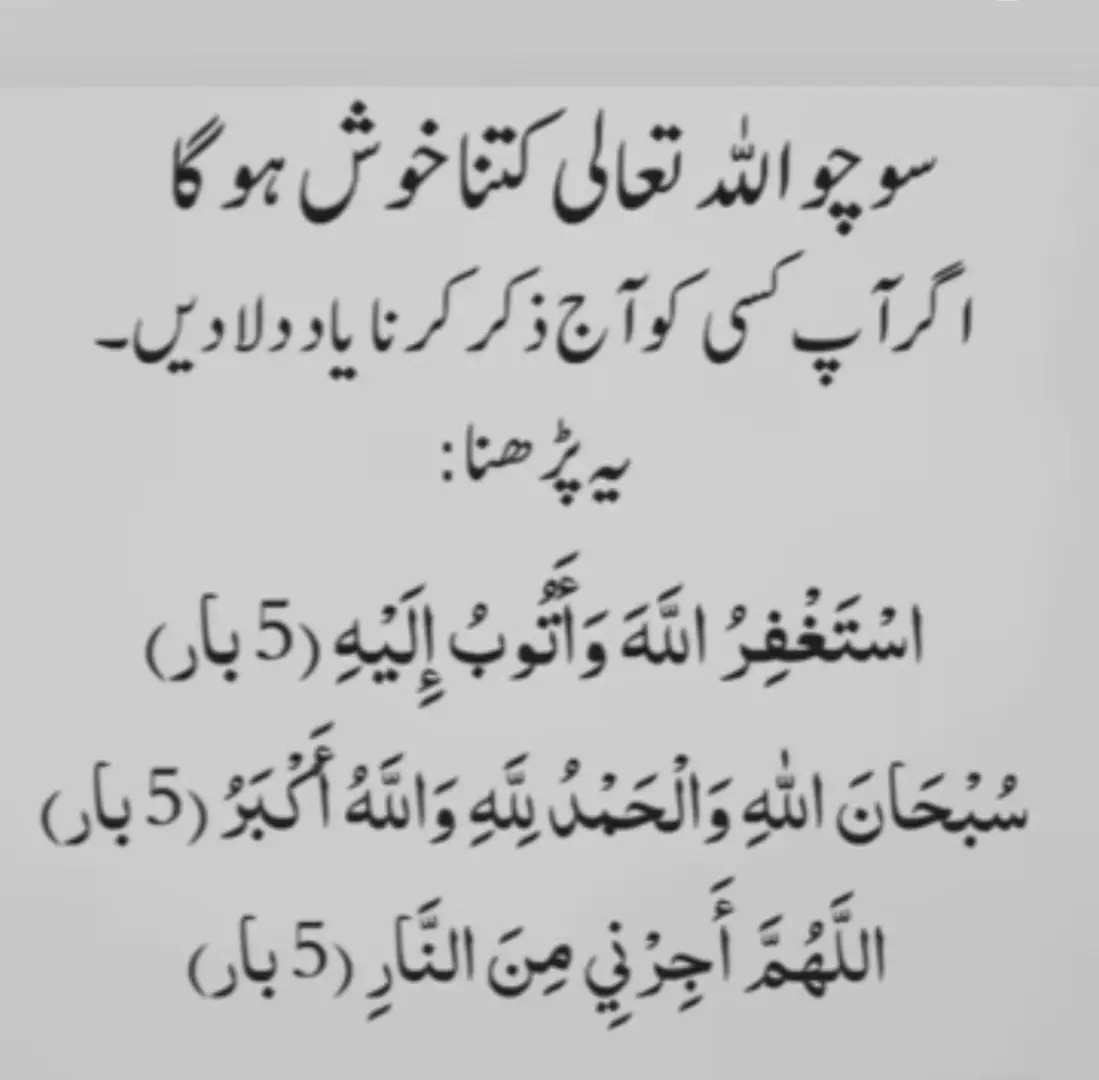 سوچو اللہ تعالی کتنا خوش ہو گا
اگر آپ کسی کو آج ذکر کرنا یاد دلا دیں۔
یہ پڑھنا:
اسْتَغْفِرُ اللَّهَ وَأَتُوبُ إِلَيْهِ (5 بار)
سُبْحَانَ اللّٰهِ وَالْحَمْدُ لِلَّهِ وَاللَّهُ أَكْبَرُ (5 بار)
اللَّهُمَّ أَجِرْنِي مِنَ النَّارِ (5 بار)